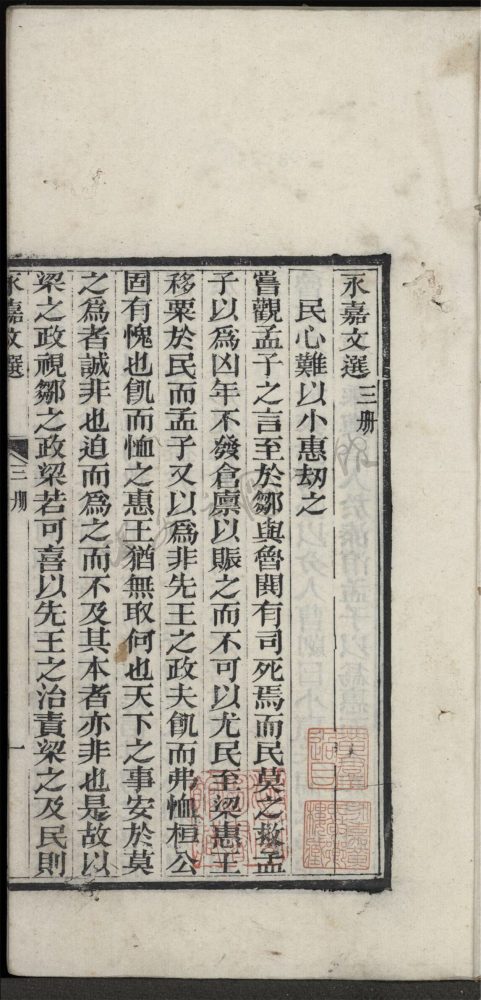 永嘉文選 三册
民心難以小惠刼之
嘗觀孟子之言至於鄒與魯鬨有司死焉而民莫之救孟
子以爲凶年不發倉廪以賑之而不可以尤民至梁惠王
移粟於民而孟子又以爲非先王之政夫飢而弗恤桓公
固有愧也飢而恤之惠王猶無取何也天下之事安於莫
之爲者誠非也迫而爲之而不及其本者亦非也是故以
梁之政視鄒之政梁若可喜以先王之治責梁之及民則
永嘉文選 三册 一